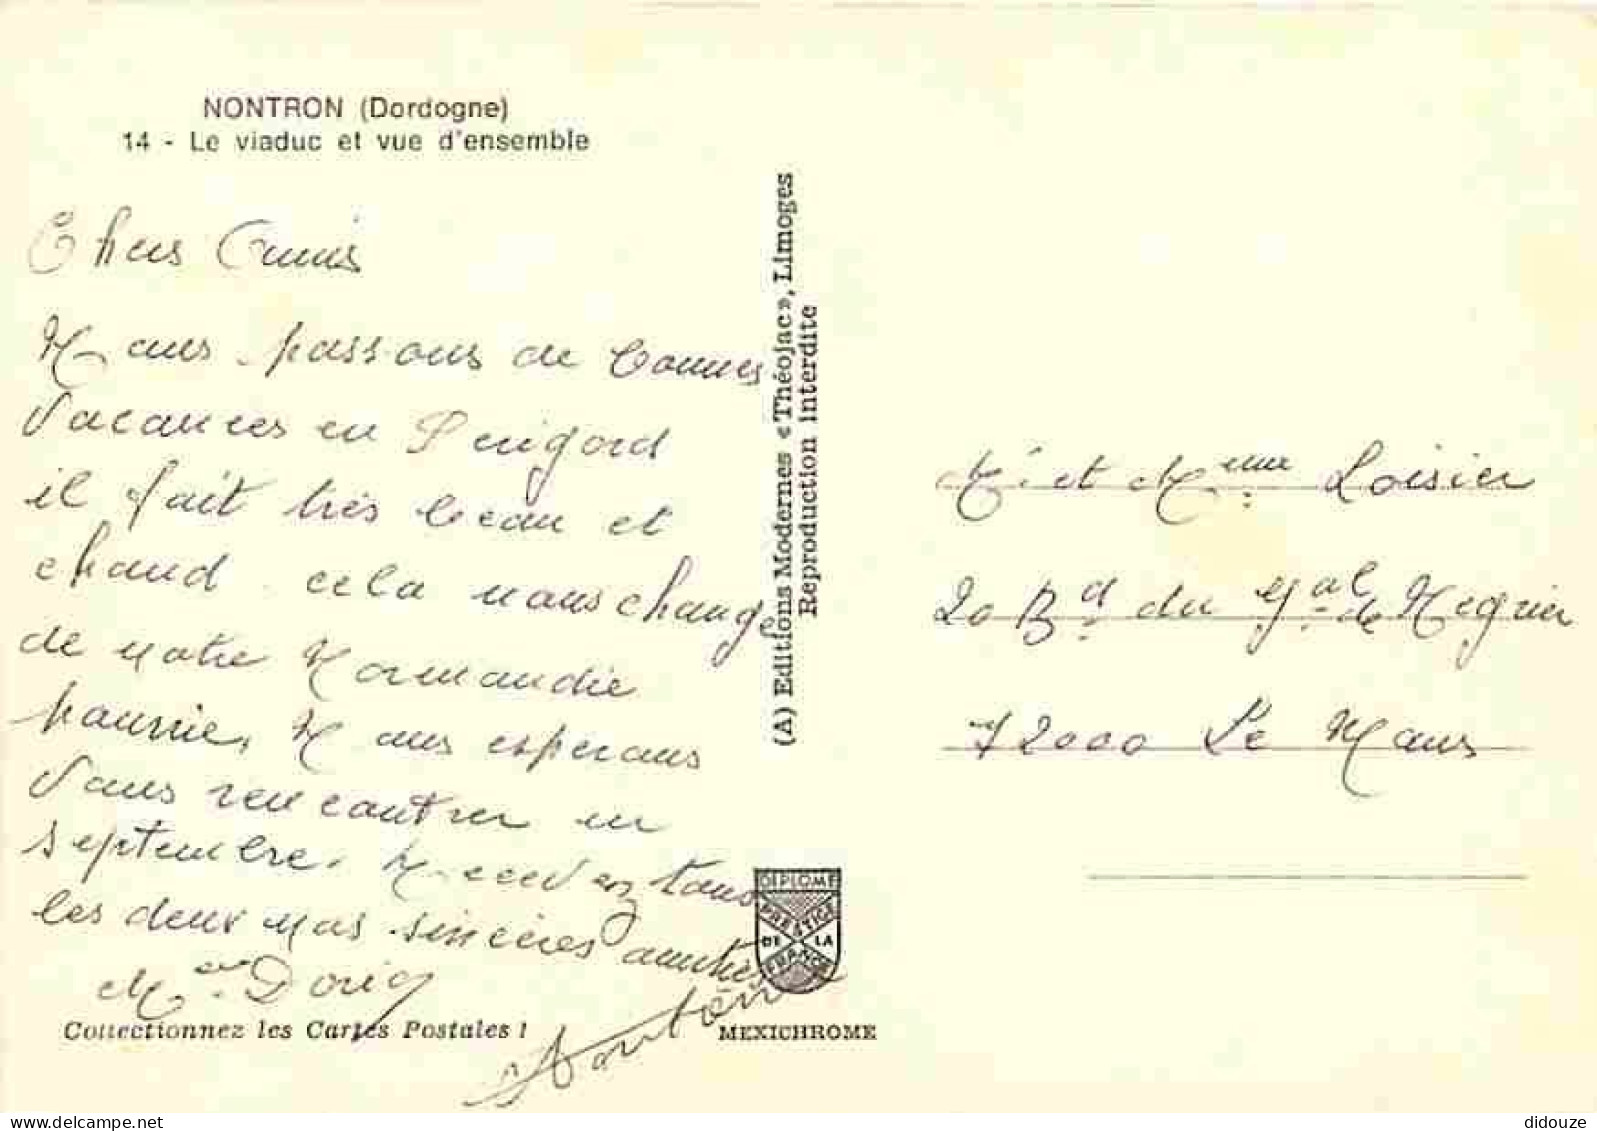 NONTRON (Dordogne)
14 - Le viaduc et vue d'ensemble
Chers Amis
Nous passons de bonnes
vacances en Périgord
il fait très beau et
chaud. cela nous change
de notre Normandie
pourrie, Nous espérons
vous rencontrer en
septembre. Recevez tous
les deux nos sincères amitiés
Dorig
Antoni
Collectionnez les Cartes Postales !
(A) Editions Modernes «Théojac», Limoges
Reproduction Interdite
DIPLOME
PRESTIGE
DE LA
FRANCE
MEXICHROME
Mr et Mme Loisier
20 Bd du Gal de Negrier
72000 Le Mans
didouze